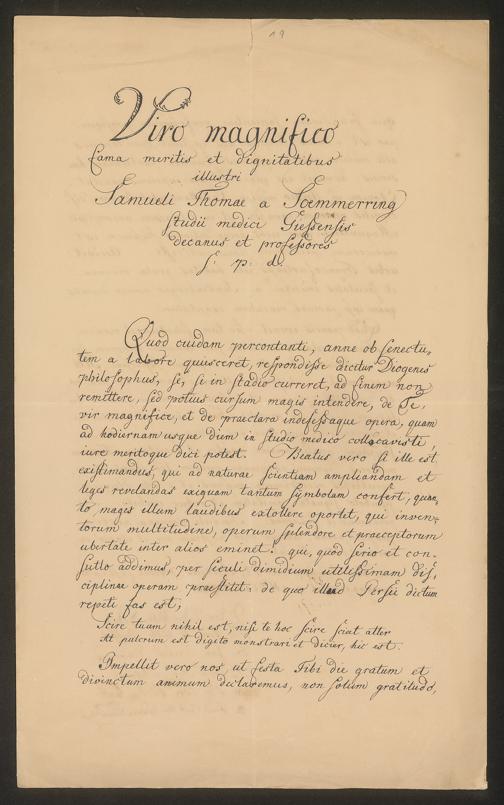 19
Viro magnifico
fama meritis et dignitatibus
illustri
Samueli Thomae a Soemmerring
studii medici Giessensis
decanus et professores
s. p. d.
Quod cuidam percontanti, anne ob senectu-
tem a labore quiesceret, respondisse dicitur Diogenes
philosophus, se, si in stadio curreret, ad finem non
remittere, sed potius cursum magis intendere, de Te,
vir magnifice, et de praeclara indefessaque opera, quam
ad hodiernam usque diem in studio medico collocavisti,
iure meritoque dici potest. Beatus vero si ille est
existimandus, qui ad naturae scientiam ampliandam et
leges revelandas exiguam tantum symbolam confert, quan-
to mages illum laudibus extollere oportet, qui inven-
torum multitudine, operum splendore et praeceptorum
ubertate inter alios eminet: qui, quod serio et con-
sulto addimus, per seculi dimidium utilissimam dis-
ciplinae operam praestitit, de quo illud Persii dictum
repeti fas est;
Scire tuum nihil est, nisi te hoc scire sciat alter
At pulcrum est digito monstrari et dicier, hic est.
Impellit vero nos, ut festa Tibi die gratum et
divinctum animum declaremus, non solum gratitudo,